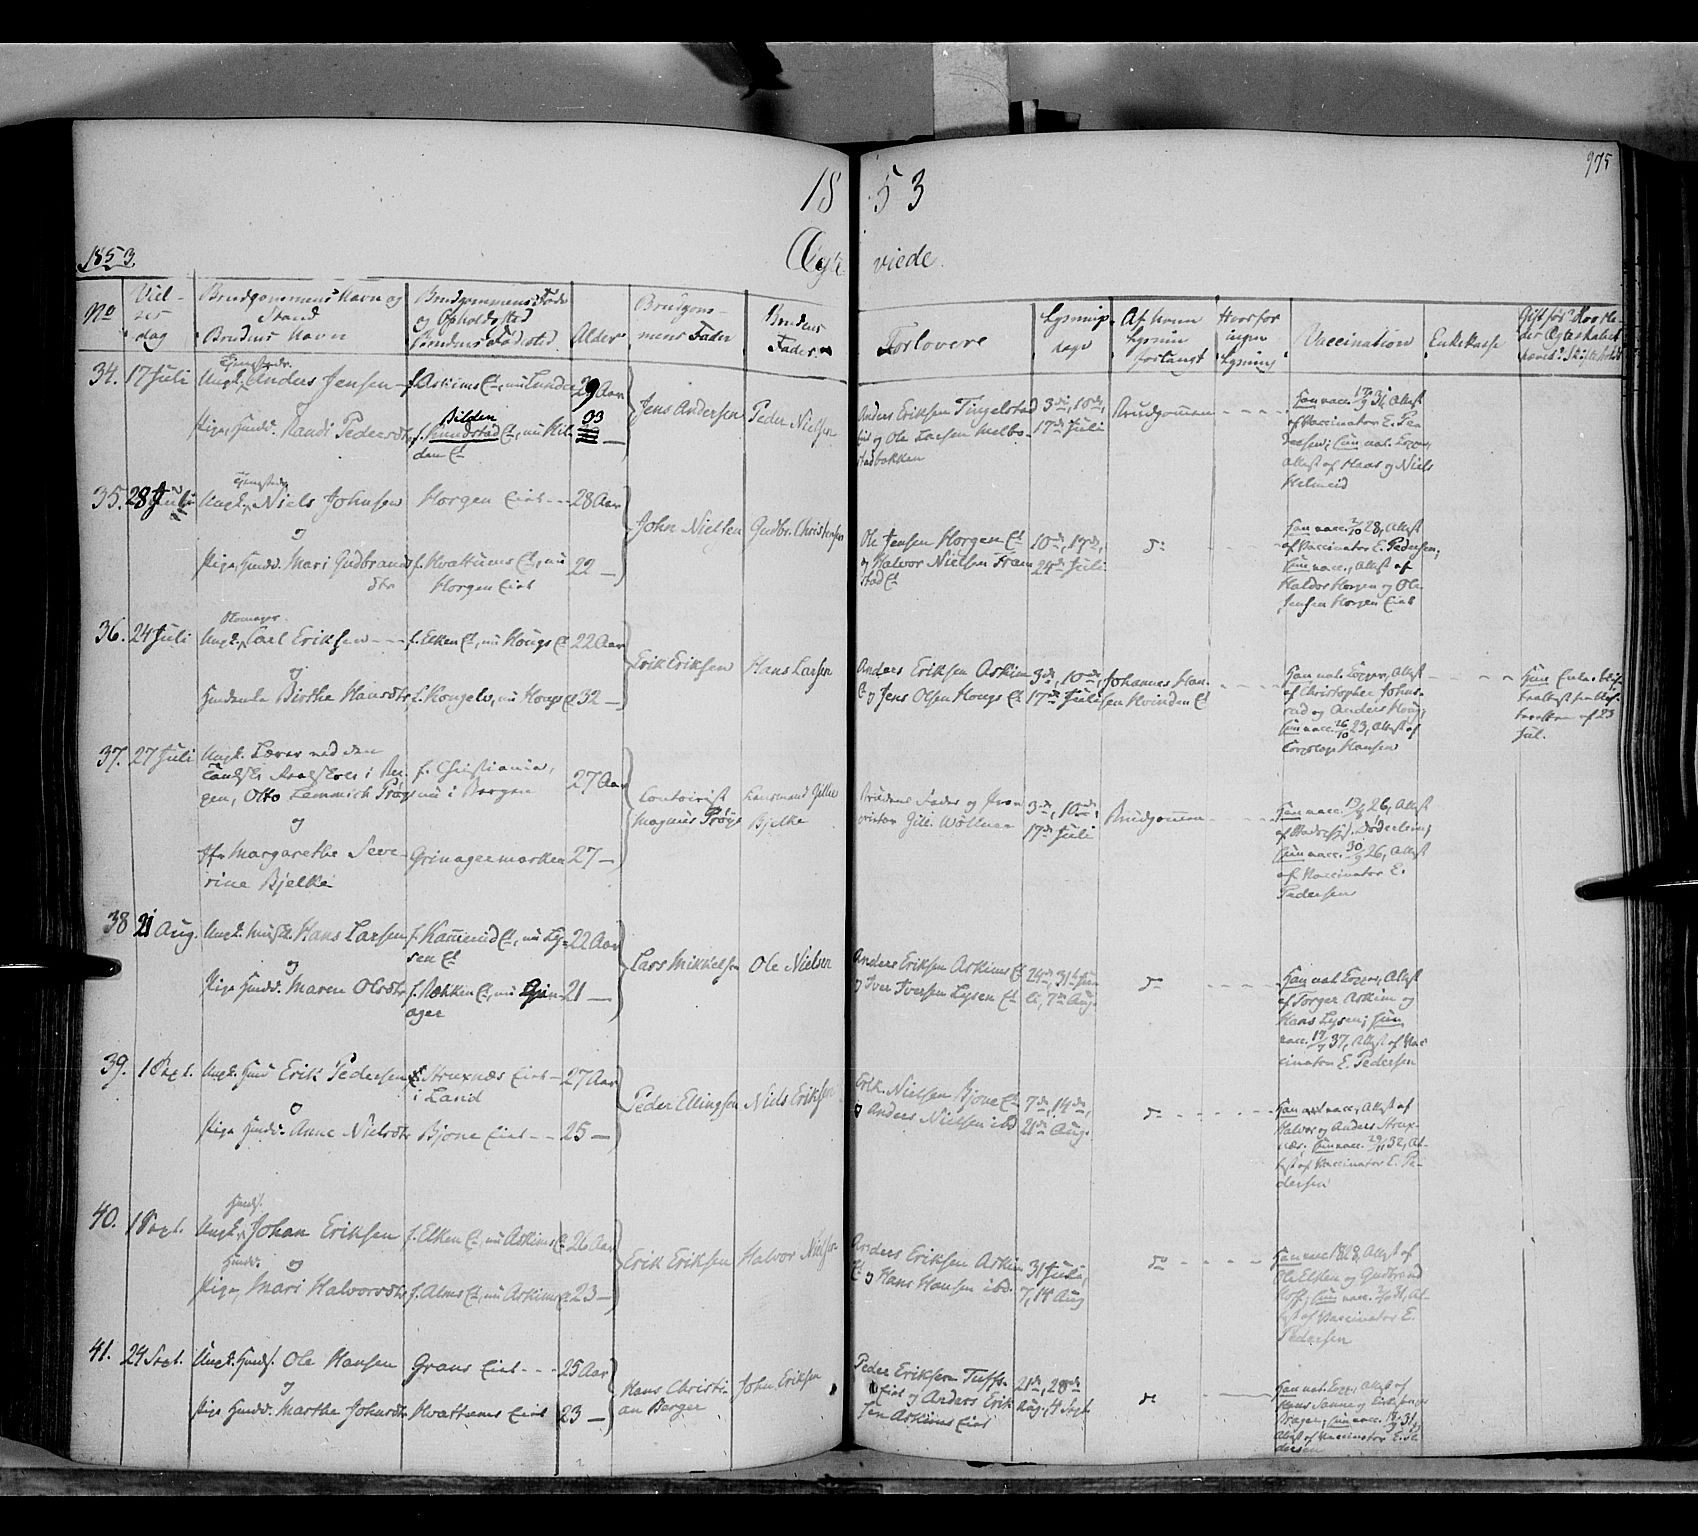 18 53
975
1853.
Ægte viede.
No
Viel-
ses
dag
Brudgommens Navn og
Stand
Brudens Navn
Brudgommens Føde
og Opholdssted
Brudens Fødested
Alder
Brudgom-
mens Fader
Brudens
Fader
Forlovere
Lysnings
dage
Af hvem
Lysning
forlangt
Hvorfor
ingen
Lysning
Vaccination
Enkekasse
34. 17 Juli
Tjenestedr.
Ungk. Anders Jensen
f. Askims Et, nu Lunde
29 Aar
Pige, Huusd. Randi Pedersdtr
Bilden
f. Knudstad Et, nu Bil-
den Et
33
Jens Andersen
Peder Nielsen
Anders Eriksen Tingelstad
Eiet og Ole Larsen Melbo-
stadbakken
3die, 10de,
17de Juli
Brudgommen
Han vacc. 17/9 31, Attest
af Vaccinator E. Pe-
dersen; Hun nat. Kopper,
Attest af Hans og Niels
Helmeid
35. 28 Juli
Ungk. Niels Johnsen
og
Pige, Huusd. Mari Gudbrands
dtr
Horgen Eiet
f. Hvattums Et, nu
Horgen Eiet
28 Aar
22
John Nielsen
Gudbr. Christensen
Ole Jensen Horgen Et
og Halvor Nielsen Fram
stad Et
10de, 17de,
24de Juli
do
Han vacc. 2/10 28, Attest
af Vaccinator E. Pedersen,
Hun vacc., Attest af
Haldor Horgen og Ole
Jensen Horgen Eiet
36. 24 Juli
Skomager
Ungk. Carl Eriksen
og
Huusenke Birthe Hansdtr
f. Elken Et, nu Hougs Et
f. Kongelv, nu Hougs Et
22 Aar
32
Erik Eriksen
Hans Larsen
Anders Eriksen Askim
Et og Jens Olsen Hougs Et
3die, 10de,
17de Juli
Johannes Han-
sen Hvinden Et
Han nat. Kopper, Attest
af Christopher Johns-
rud og Anders Houg;
Hun vacc. 26/10 23, Attest af
Hansen
Hun Enke
af 23
Jul.
37. 27 Juli
Ungk. Lærer ved den
Tanks Realskole i Ber-
gen, Otto Lemmich Prøys
og
Jfr Margarethe Seve-
rine Bjelke
f. Christiania,
nu i Bergen
Grinagermarken
27 Aar
27
Contorist
Magnus Prøys
Kaarsmand Jillu
Bjelke
Brudens Fader og Pro-
prietær Jill. Wøllner
3die, 10de
17de Juli
Brudgommen
Han vacc. 26, Attest
Hun vacc. 30/9 26, Attest
af Vaccinator E.
Pedersen
38 21 Aug.
Ungk. Huusk. Hans Larsen
og
Pige Huusd. Maren Olsdtr
f. Kammerud Et, nu Ly-
sen Et
f. Bækken Et, nu Grin-
ager
22 Aar
21
Lars Mikkelsen
Ole Nielsen
Anders Eriksen Askims Et
og Iver Iversen Lysen Et
24de, 31te Ju-
li, 7de Aug.
do
Han nat. Kopper, Attest
af Torger Askim og
Hans Lysen; Hun
vacc. 17/7 37, Attest af Vac
cinator E. Pedersen
39. 1 Sept.
Ungk. Huus Erik Pedersen
og
Pige Huusd. Anne Nielsdtr
f. Struxnæs Eiet
i Land
Bjone Eiet
27 Aar
25
Peder Ellingsen
Niels Eriksen
Erik Nielsen Bjone Et
og Anders Nielsen ibd
7de, 14de,
21de Aug.
do
Han vacc, Attest af
Halvor og Anders Strux-
næs; Hun vacc. 29/11 32, At-
test af Vaccinator E. Pe-
dersen
40. 1 Sept.
Huusf.
Ungk. Johan Eriksen
Huusd. og
Pige, Mari Halvorsdtr
f. Elken Et, nu Askims Et
f. Alms Et, nu Askims Et
26 Aar
23
Erik Eriksen
Halvor Nielsen
Anders Eriksen Askim
Et og Hans Hansen ibd.
31 Juli,
7, 14 Aug
do
Han vacc 1828, Attest af
Ole Elken og Gudbrand
Hun vacc. 31, At-
test af Vaccinator E.
Pedersen
41. 24 Sept.
Ungk. Huusf. Ole Hansen
og
Pige Huusd. Marthe Johnsdtr
Grans Eiet
Hvattums Eiet
25 Aar
23
Hans Christi-
an Berger
John Eriksen
Peder Eriksen Tuffs-
Eiet og Anders Erik
sen Askims Eiet
21de, 28de
Aug., 4 Sept
do
Han nat. Kopp., Attest af
Hans Sanne og Erik
Hun vacc. 18/9 31,
Attest af Vaccinator E. Pe
dersen